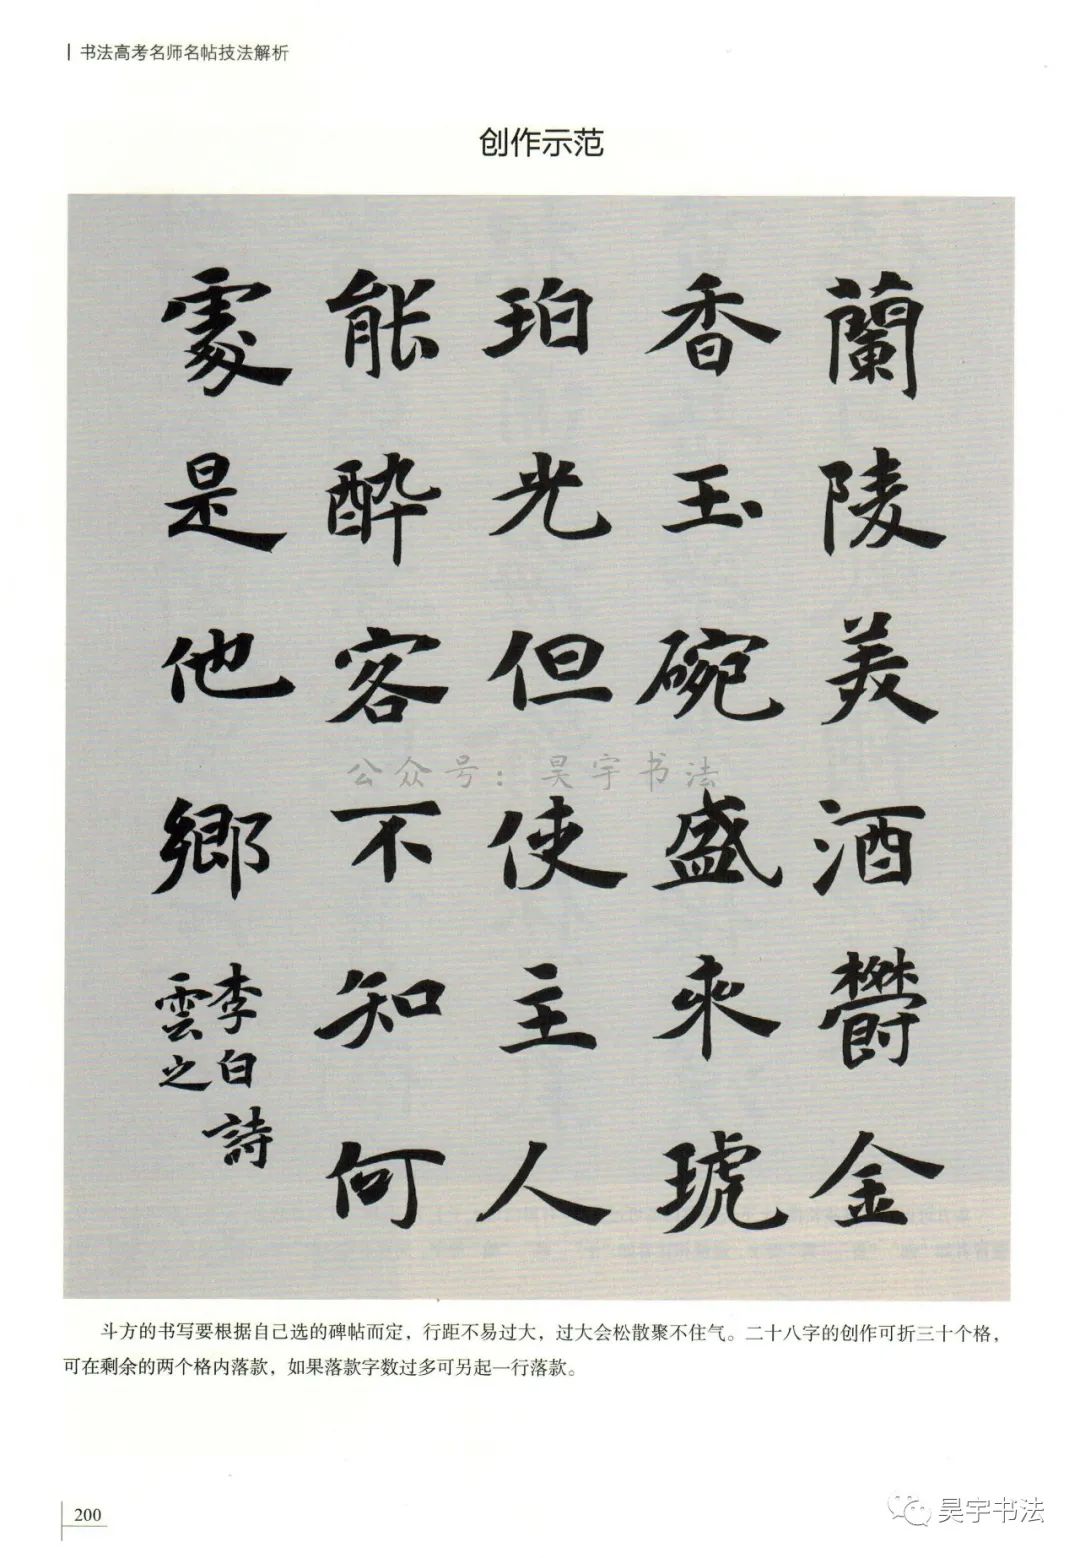 书法高考名师名帖技法解析
创作示范
蘭陵美酒鬱金
香玉碗盛來琥
珀光但使主人
能醉客不知何
處是他鄉
李白詩
雲之
公众号：昊宇书法
斗方的书写要根据自己选的碑帖而定，行距不易过大，过大会松散聚不住气。二十八字的创作可折三十个格，
可在剩余的两个格内落款，如果落款字数过多可另起一行落款。
200
昊宇书法